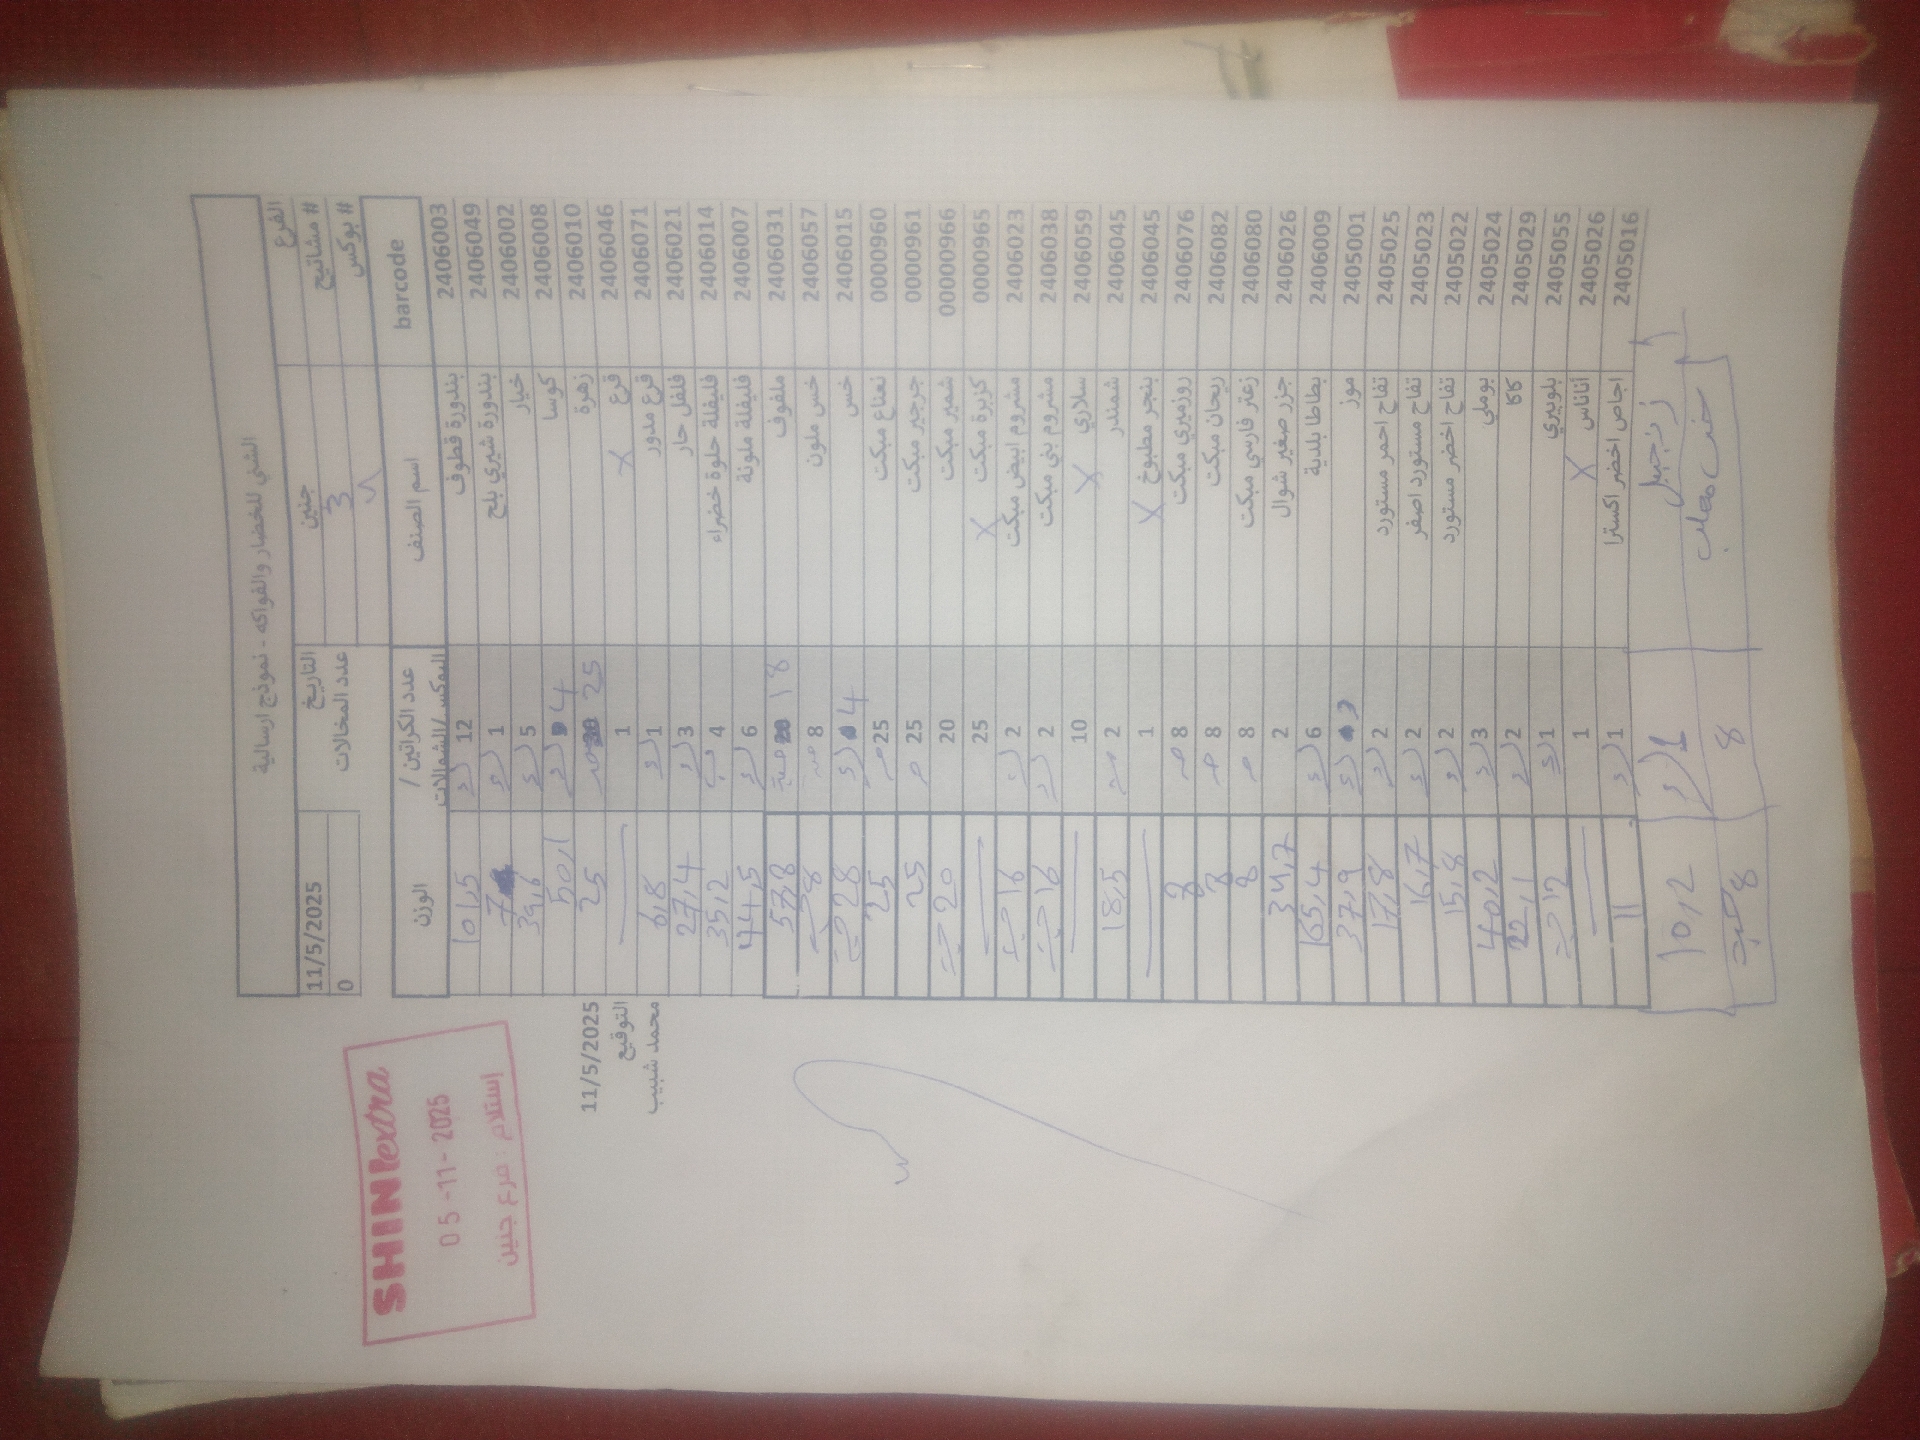 الشني للخضار والفواكه - نموذج ارسالية
الفرع جنين التاريخ 11/5/2025
# مشاتيح 3 عدد المخالات 0
# بوكس
barcode اسم الصنف عدد الكراتين / البوكس/الشوالات الوزن
2406003 بندورة قطوف 12 101,5
2406049 بندورة شيري بلح 1 7
2406002 خيار 5 39,6
2406008 كوسا 4 50,1
2406010 زهرة 25 25
2406046 قرع X 1
2406071 قرع مدور 1 6,8
2406021 فلفل حار 3 27,4
2406014 فليفلة حلوة خضراء 4 35,2
2406007 فليفلة ملونة 6 44,5
2406031 ملفوف 18 57,8
2406057 خس ملون 8 8
2406015 خس 4 28
0000960 نعناع مبكت 25 25
0000961 جرجير مبكت 25 25
00000966 شمير مبكت 20 20
0000965 كزبرة مبكت X 25
2406023 مشروم ابيض مبكت 2 16
2406038 مشروم بني مبكت 2 16
2406059 سلاري X 10
2406045 شمندر 2 18,5
2406045 بنجر مطبوخ X 1
2406076 روزميري مبكت 8 8
2406082 ريحان مبكت 8 8
2406080 زعتر فارسي مبكت 8 8
2406026 جزر صغير شوال 2 34,7
2406009 بطاطا بلدية 6 165,4
2405001 موز 37,9
2405025 تفاح احمر مستورد 2 17,8
2405023 تفاح مستورد اصفر 2 16,7
2405022 تفاح اخضر مستورد 2 15,8
2405024 بوملي 3 40,2
2405029 كاكا 2 22,1
2405055 بلوبيري 1 12
2405026 اناناس X 1
2405016 اجاص اخضر اكسترا 1 11
زنجبيل 1 10,2
8 8
11/5/2025
التوقيع
محمد شبيب
SHINI extra
05-11-2025
إستلام : فرع جنين